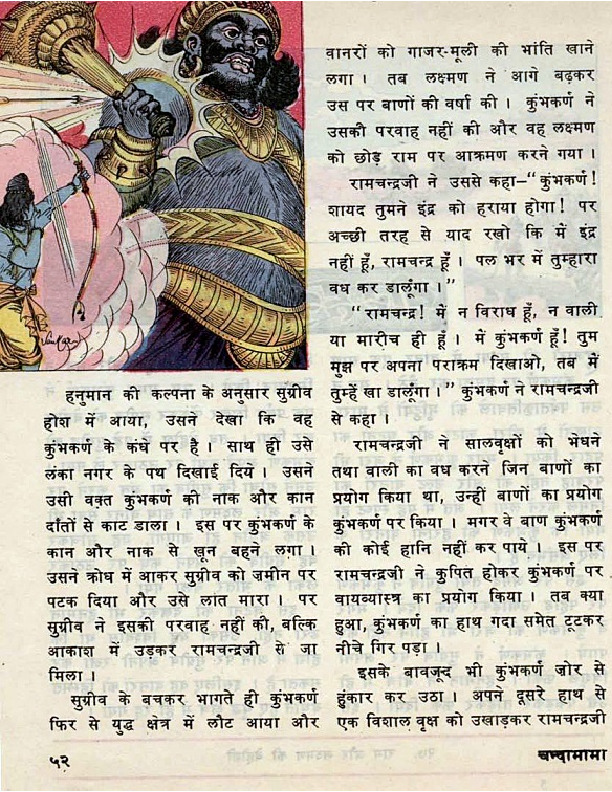 हनुमान की कल्पना के अनुसार सुग्रीव
होश में आया, उसने देखा कि वह
कुंभकर्ण के कंधे पर है । साथ ही उसे
लंका नगर के पथ दिखाई दिये । उसने
उसी वक़्त कुंभकर्ण की नाक और कान
दाँतों से काट डाला । इस पर कुंभकर्ण के
कान और नाक से खून बहने लगा ।
उसने क्रोध में आकर सुग्रीव को जमीन पर
पटक दिया और उसे लात मारा । पर
सुग्रीव ने इसकी परवाह नहीं की, बल्कि
आकाश में उड़कर रामचन्द्रजी से जा
मिला ।
सुग्रीव के बचकर भागते ही कुंभकर्ण
फिर से युद्ध क्षेत्र में लौट आया और
वानरों को गाजर-मूली की भांति खाने
लगा । तब लक्ष्मण ने आगे बढ़कर
उस पर बाणों की वर्षा की । कुंभकर्ण ने
उसकी परवाह नहीं की और वह लक्ष्मण
को छोड़ राम पर आक्रमण करने गया ।
रामचन्द्रजी ने उससे कहा–“ कुंभकर्ण !
शायद तुमने इंद्र को हराया होगा ! पर
अच्छी तरह से याद रखो कि में इंद्र
नहीं हूँ, रामचन्द्र हूँ । पल भर में तुम्हारा
वध कर डालूंगा । ”
“ रामचन्द्र ! में न विराध हूँ, न वाली
या मारीच ही हूँ । में कुंभकर्ण हूँ ! तुम
मुझ पर अपना पराक्रम दिखाओ, तब में
तुम्हें खा डालूंगा । ” कुंभकर्ण ने रामचन्द्रजी
से कहा ।
रामचन्द्रजी ने सालवृक्षों को भेधने
तथा बाली का वध करने जिन बाणों का
प्रयोग किया था, उन्हीं बाणों का प्रयोग
कुंभकर्ण पर किया । मगर वे बाण कुंभकर्ण
की कोई हानि नहीं कर पाये । इस पर
रामचन्द्रजी ने कुपित होकर कुंभकर्ण पर
वायव्यास्त्र का प्रयोग किया । तब क्या
हुआ, कुंभकर्ण का हाथ गदा समेत टूटकर
नीचे गिर पड़ा ।
इसके बावजूद भी कुंभकर्ण ज़ोर से
हुंकार कर उठा । अपने दूसरे हाथ से
एक विशाल वृक्ष को उखाड़कर रामचन्द्रजी
५२
चन्दामामा